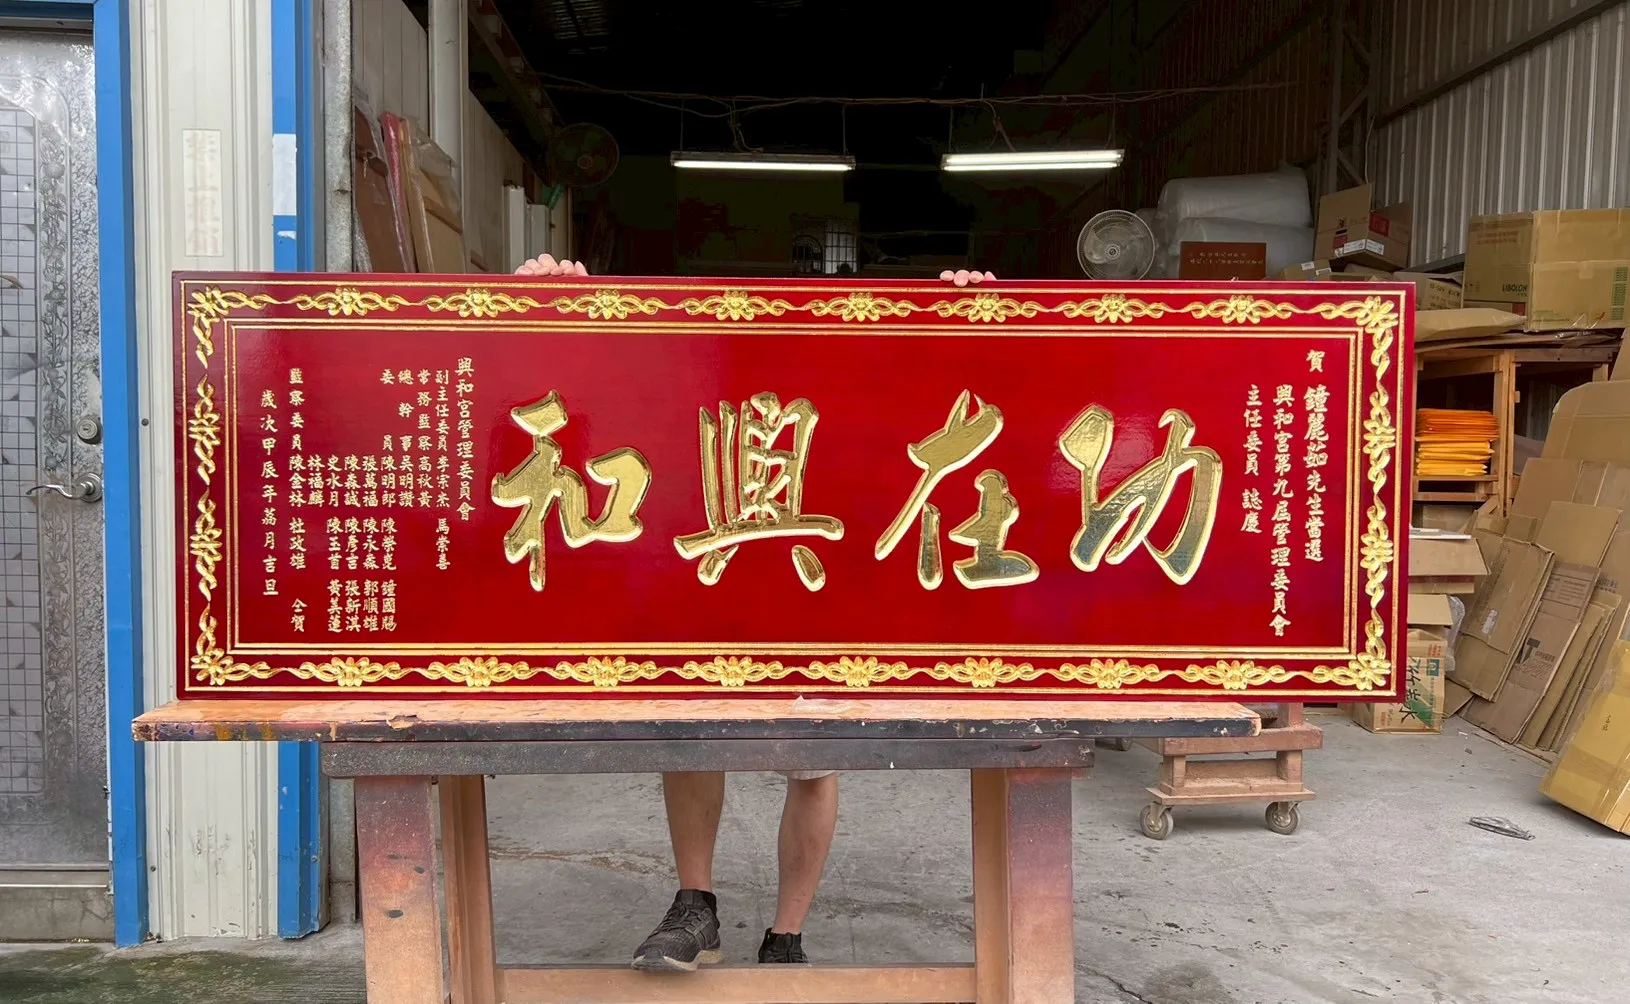 賀 鐘麗茹先生當選
興和宮第九屆管理委員會
主任委員 誌慶
功在興和
興和宮管理委員會
副主任委員 李宗杰 馬崇喜
常務監察 高秋黃
總幹事 吳明讚
委員 陳明郎 陳榮堯 鐘國賜
張萬福 陳永森 郭順雄
陳森誠 陳彥吉 張新淇
史水月 陳玉首 黃美蓮
林福麟
監察委員 陳金林 杜政雄 仝賀
歲次甲辰年荔月吉旦
LIBOLON